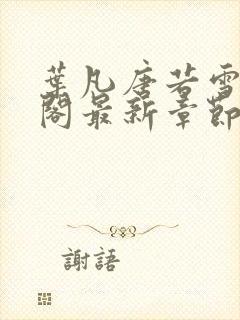 葉凡唐若雪
閣最新章節
謝語